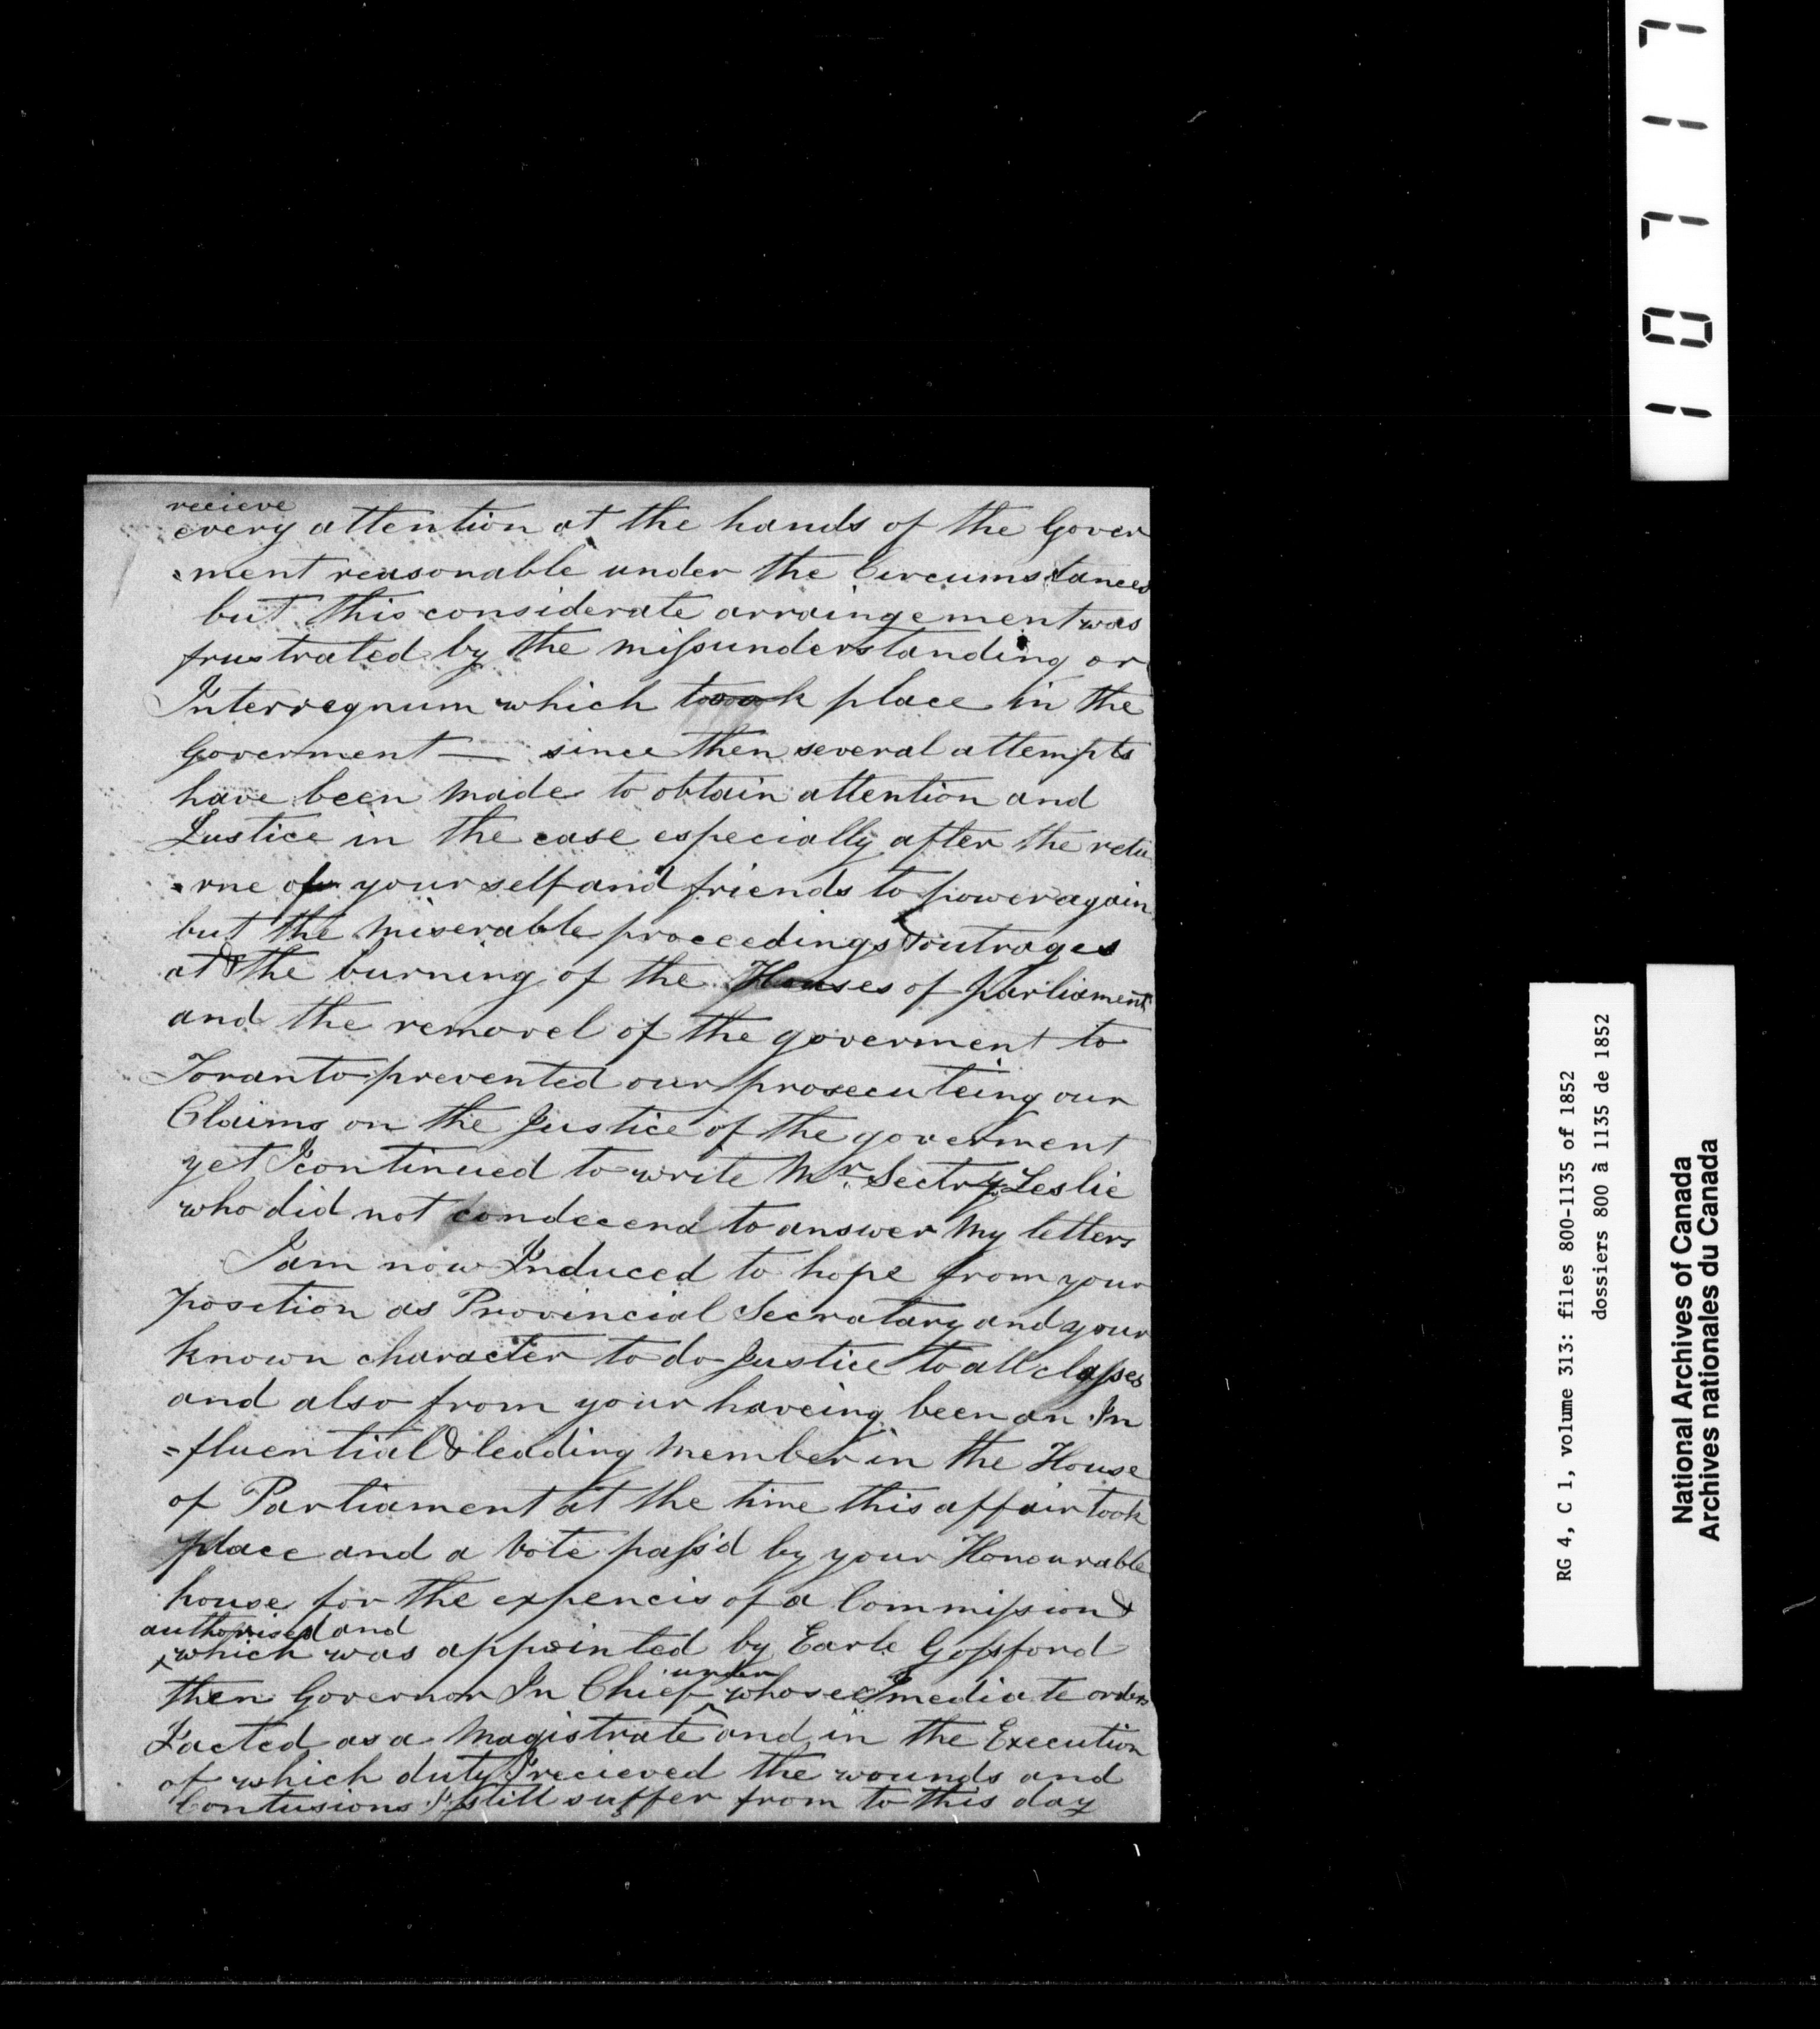 recieve
every attention at the hands of the Gover
=ment reasonable under the Circumstances
but this considerate arraingement was
frustrated by the missunderstanding or
Interregnum which toook place in the
Goverment — since then several attempts
have been made to obtain attention and
Justice in the case especially after the retu
=rne of yourself and friends to power again
but the miserable proceedings & outrages
at & the burning of the Houses of parliament
and the removel of the goverment to
Toranto prevented our prosecuteing our
Claims on the Justice of the goverment
yet I continued to write Mr. Sectry Leslie
who did not condecend to answer my letters
I am now Induced to hope from your
position as Provincial Secratary and your
known character to do Justice to all classes
and also from your haveing been an In
=fluential & leading member in the House
of Parliament at the time this affair took
place and a vote pass'd by your Honourable
house for the expencis of a Commission &
authorised and
which was appointed by Earle Gossford
then Governor In Chief under whose Imediate orders
I acted as a Magistrate and in the Execution
of which duty I recieved the wounds and
Contusions I still suffer from to this day
107117
RG 4, C 1, volume 313: files 800-1135 of 1852
dossiers 800 à 1135 de 1852
National Archives of Canada
Archives nationales du Canada